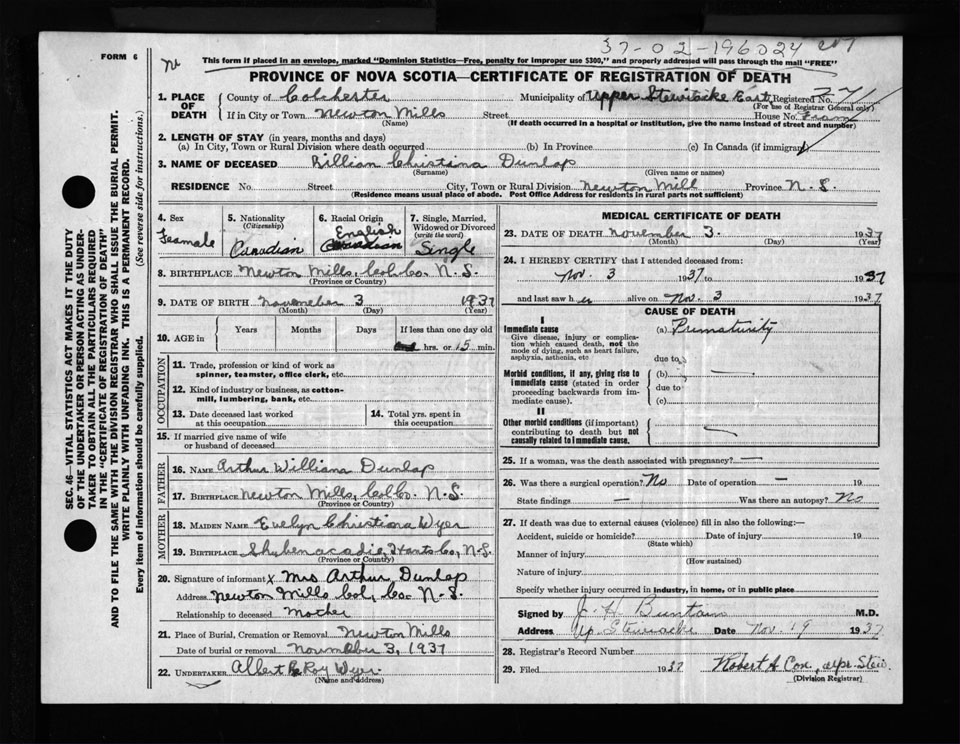 37-02-196024
FORM 6
This form if placed in an envelope, marked "Dominion Statistics—Free, penalty for improper use $300," and properly addressed will pass through the mail "FREE"
PROVINCE OF NOVA SCOTIA—CERTIFICATE OF REGISTRATION OF DEATH
1. PLACE OF DEATH
County of Colchester Municipality of Upper Stewiacke East Registered No.
(For use of Registrar General only)
If in City or Town Newton Mills Street House No.
(Name) (If death occurred in a hospital or institution, give the name instead of street and number)
2. LENGTH OF STAY (in years, months and days)
(a) In City, Town or Rural Division where death occurred (b) In Province (c) In Canada (if immigrant)
3. NAME OF DECEASED Lillian Christina Dunlap
(Surname) (Given name or names)
RESIDENCE No. Street City, Town or Rural Division Newton Mill Province N.S.
(Residence means usual place of abode. Post Office Address for residents in rural parts not sufficient)
4. Sex Feamale
5. Nationality (Citizenship) Canadian
6. Racial Origin English Canadian
7. Single, Married, Widowed or Divorced (write the word) Single
8. BIRTHPLACE Newton Mills, Col. Co. N.S.
(Province or Country)
9. DATE OF BIRTH Novemeber 3 1937
(Month) (Day) (Year)
10. AGE in Years Months Days If less than one day old
hrs. or 15 min.
OCCUPATION
11. Trade, profession or kind of work as spinner, teamster, office clerk, etc.
12. Kind of industry or business, as cotton-mill, lumbering, bank, etc.
13. Date deceased last worked at this occupation
14. Total yrs. spent in this occupation
15. If married give name of wife or husband of deceased
FATHER
16. NAME Arthur Williams Dunlap
17. BIRTHPLACE Newton Mills, Col Co. N.S.
(Province or Country)
MOTHER
18. MAIDEN NAME Evelyn Christiona Wyer
19. BIRTHPLACE Shubenacadie, Hants Co, N.S.
(Province or Country)
20. Signature of informant x Mrs Arthur Dunlap
Address Newton Mills Col, Co. N.S.
Relationship to deceased Mother
21. Place of Burial, Cremation or Removal Newton Mills
Date of burial or removal November 3, 1937
22. UNDERTAKER Albert Roy Wyer
(Name and address)
MEDICAL CERTIFICATE OF DEATH
23. DATE OF DEATH November 3. 1937
(Month) (Day) (Year)
24. I HEREBY CERTIFY that I attended deceased from:
Nov. 3 1937 to 1937
and last saw her alive on Nov. 3 1937
CAUSE OF DEATH
I
Immediate cause
Give disease, injury or complication which caused death, not the mode of dying, such as heart failure, asphyxia, asthenia, etc
(a) Prematurity
due to
Morbid conditions, if any, giving rise to immediate cause (stated in order proceeding backwards from immediate cause).
(b) —
due to
(c)
II
Other morbid conditions (if important) contributing to death but not causally related to immediate cause.
25. If a woman, was the death associated with pregnancy? —
26. Was there a surgical operation? No Date of operation — 19
State findings — Was there an autopsy? No
27. If death was due to external causes (violence) fill in also the following:—
Accident, suicide or homicide? Date of injury 19
(State which)
Manner of injury
(How sustained)
Nature of injury
Specify whether injury occurred in industry, in home, or in public place
Signed by J. H. Buntain M.D.
Address Up. Stewiacke Date Nov. 19 1937
28. Registrar's Record Number
29. Filed 1937 Robert A Cox, upr. Stew.
(Division Registrar)
SEC. 46—VITAL STATISTICS ACT MAKES IT THE DUTY
OF THE UNDERTAKER OR PERSON ACTING AS UNDER-
TAKER TO OBTAIN ALL THE PARTICULARS REQUIRED
IN THE "CERTIFICATE OF REGISTRATION OF DEATH"
AND TO FILE THE SAME WITH THE DIVISION REGISTRAR WHO SHALL ISSUE THE BURIAL PERMIT.
WRITE PLAINLY WITH UNFADING INK. THIS IS A PERMANENT RECORD.
Every item of information should be carefully supplied. (See reverse side for instructions.)